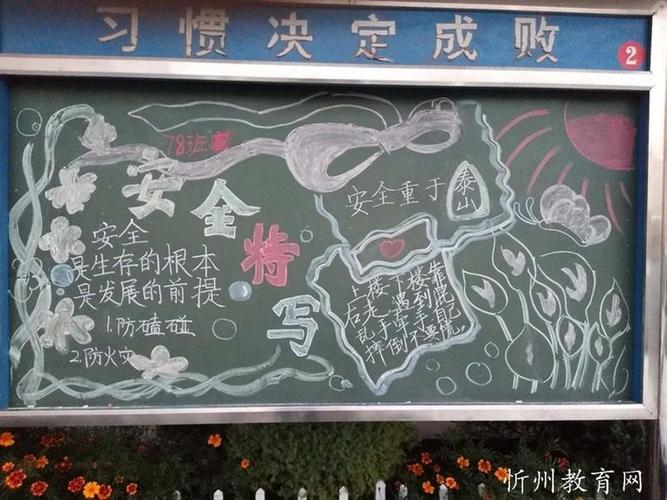 习惯决定成败
2
78班宣
安全特写
安全
是生存的根本
是发展的前提
1.防磕碰
2.防火灾
安全重于
泰山
上楼下楼靠
右走遇到混
乱手牵手自己
摔倒不要慌。
忻州教育网